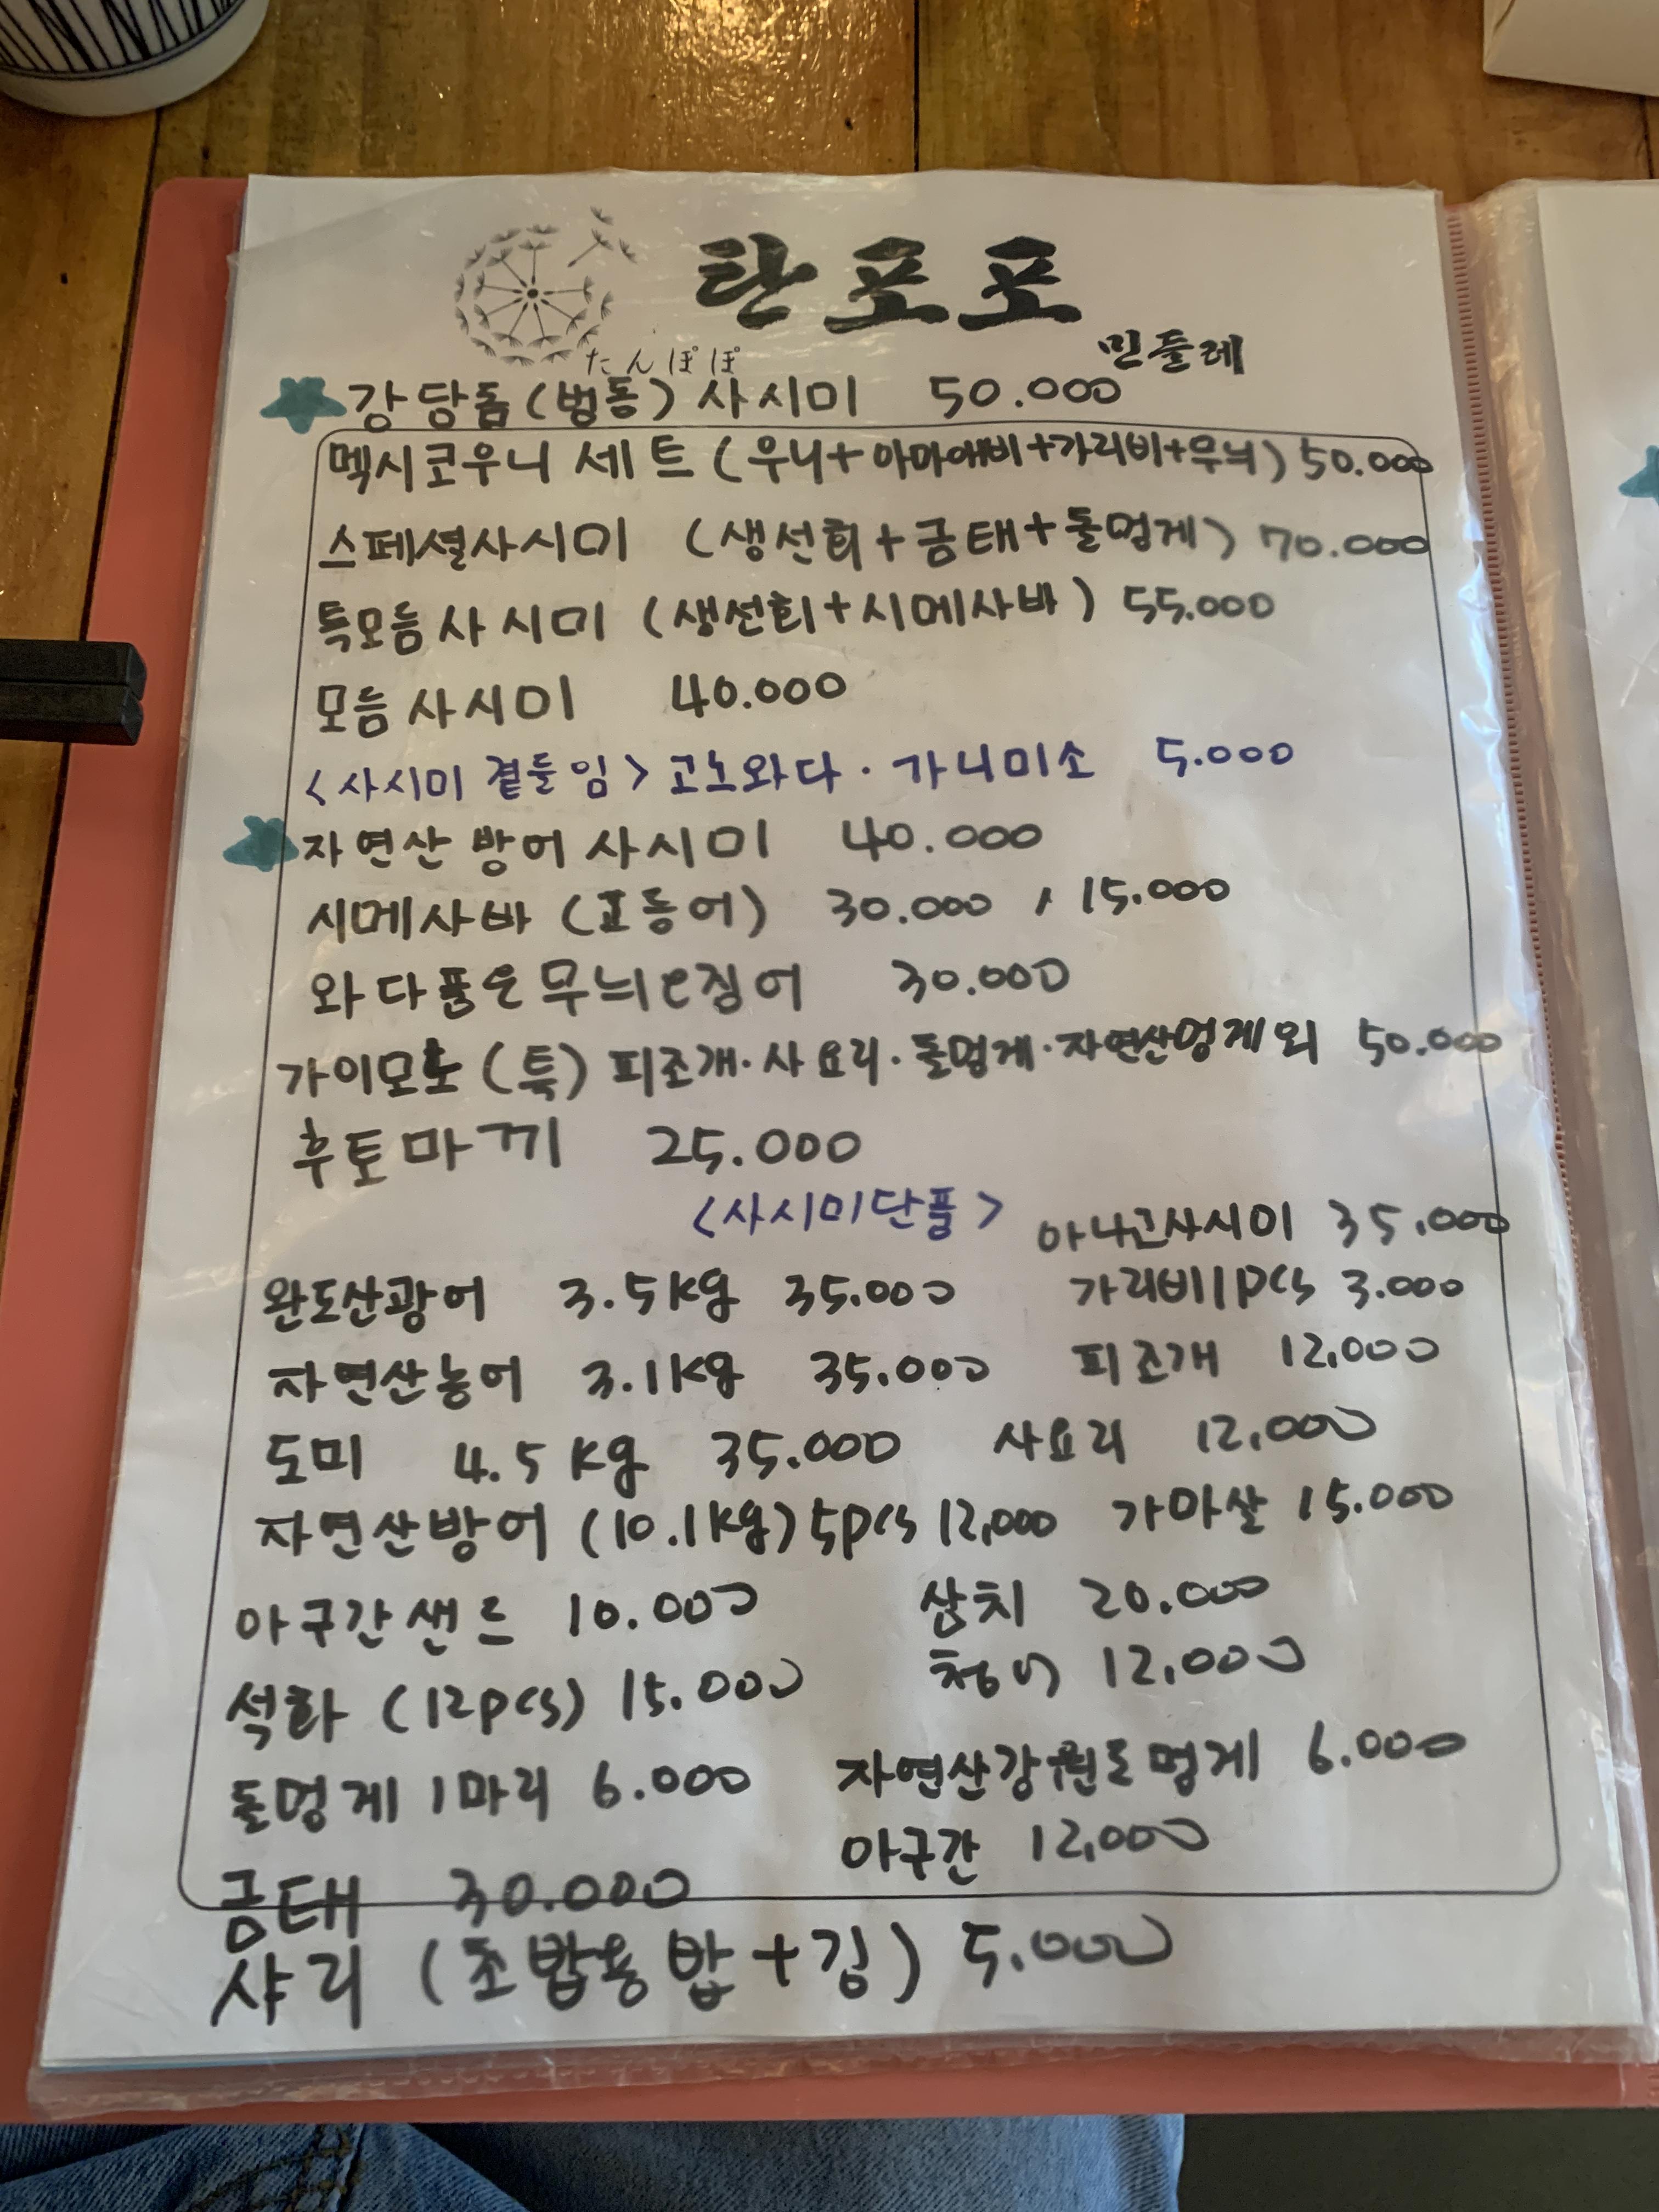 탄포포
たんぽぽ 민들레
강당돔(범돔) 사시미 50.000
멕시코우니 세트 (우니+아마애비+가리비+무늬) 50.000
스페셜사시미 (생선회+금태+돌멍게) 70.000
특모듬사시미 (생선회+시메사바) 55.000
모듬사시미 40.000
<사시미 곁들임> 고노와다 · 가니미소 5.000
자연산 방어 사시미 40.000
시메사바 (고등어) 30.000 / 15.000
와다품은 무늬오징어 30.000
가이모노 (특) 피조개·사요리·돌멍게·자연산멍게 외 50.000
후토마끼 25.000
<사시미단품>
아나고사시미 35.000
완도산광어 3.5kg 35.000 가리비 1pcs 3.000
자연산농어 3.1kg 35.000 피조개 12,000
도미 4.5kg 35.000 사요리 12,000
자연산방어 (10.1kg) 5pcs 12,000 가마살 15.000
아구간샌드 10.000 삼치 20.000
석화 (12pcs) 15.000 청어 12,000
돌멍게 1마리 6.000 자연산강원도멍게 6.000
아구간 12,000
금태 30.000
샤리 (초밥용밥+김) 5.000